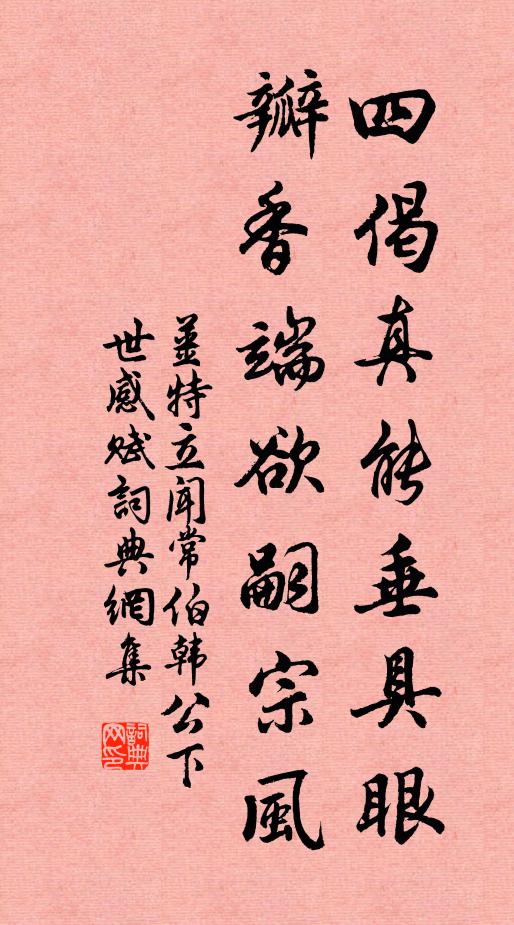 四偈真能垂具眼
瓣香端欲嗣宗風
姜特立闻常伯韩公下
世感赋詞典網集
詞典网印